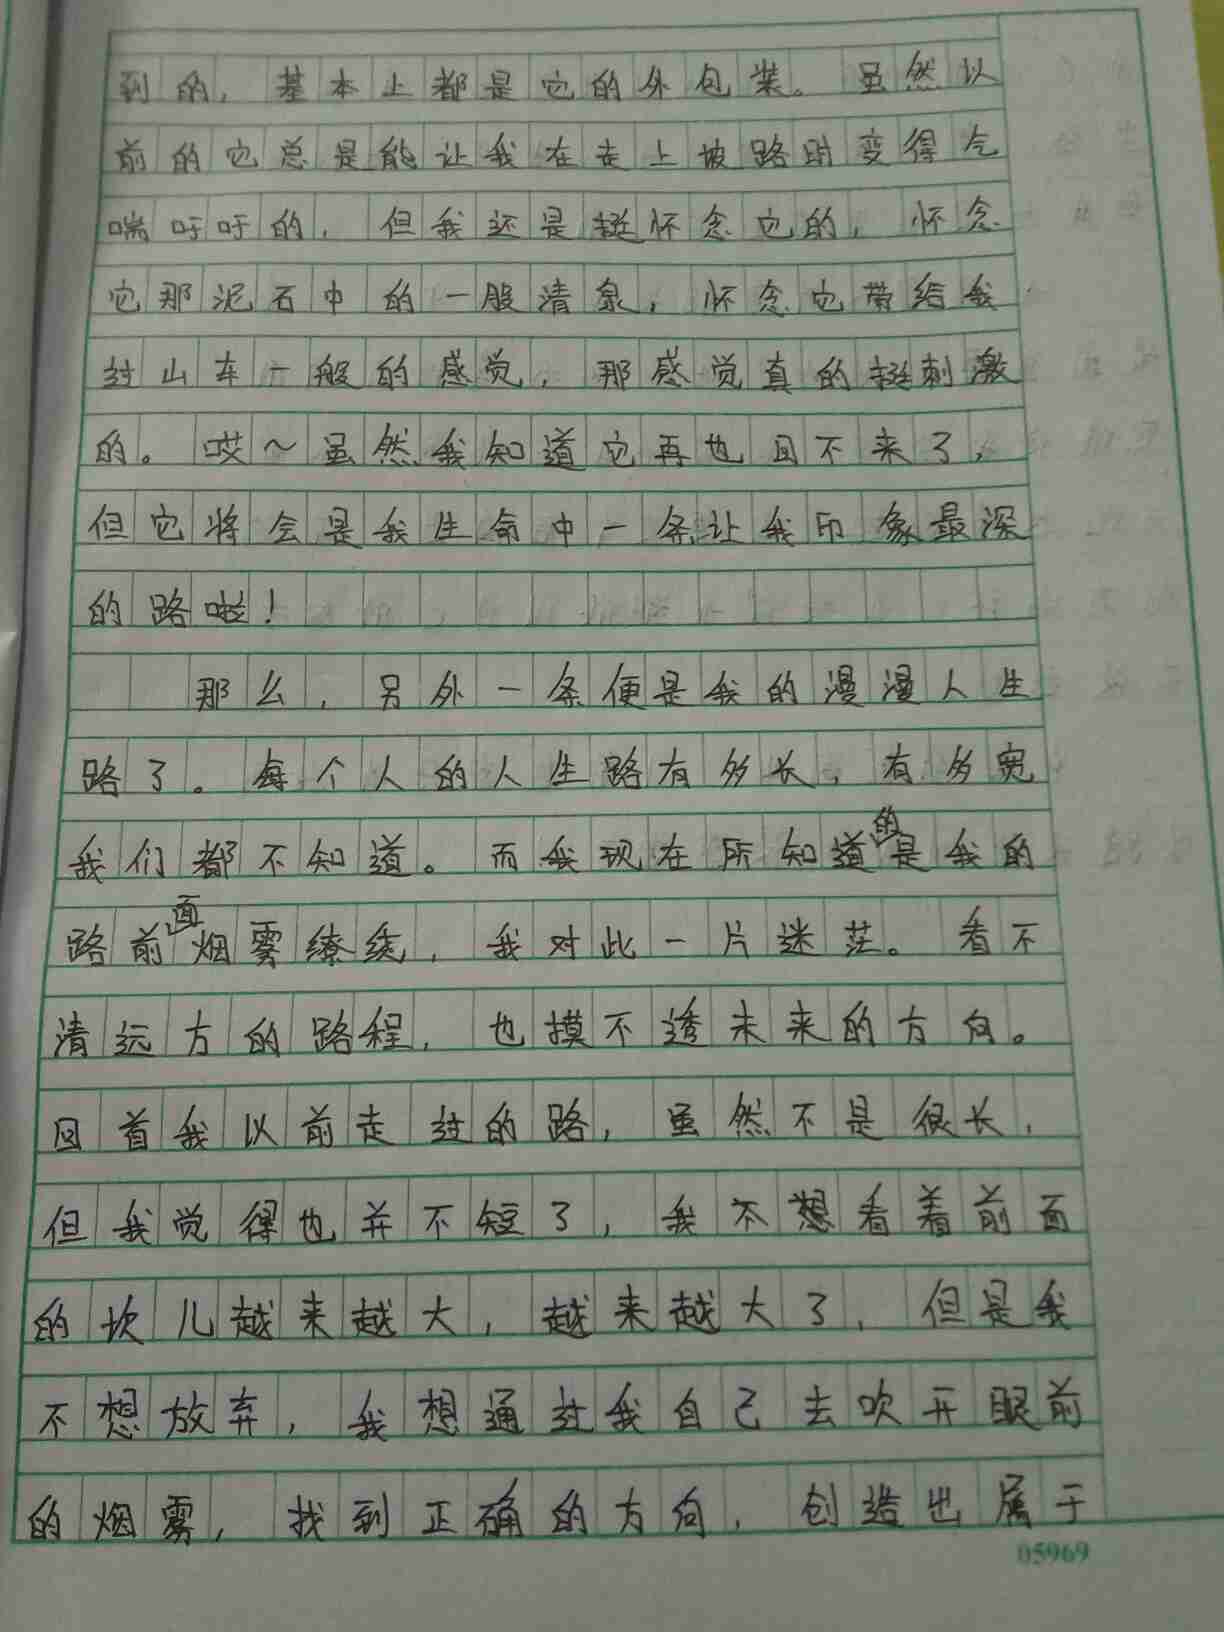 到的，基本上都是它的外包装。虽然以
前的它总是能让我在走上坡路时变得气
喘吁吁的，但我还是挺怀念它的，怀念
它那泥石中的一股清泉，怀念它带给我
过山车一般的感觉，那感觉真的挺刺激
的。哎～虽然我知道它再也回不来了，
但它将会是我生命中一条让我印象最深
的路啦！
那么，另外一条便是我的漫漫人生
路了。每个人的人生路有多长，有多宽
我们都不知道。而我现在所知道的是我的
路前面烟雾缭绕，我对此一片迷茫。看不
清远方的路程，也摸不透未来的方向。
回首我以前走过的路，虽然不是很长，
但我觉得也并不短了，我不想看着前面
的坎儿越来越大，越来越大了，但是我
不想放弃，我想通过我自己去吹开眼前
的烟雾，找到正确的方向，创造出属于
05969